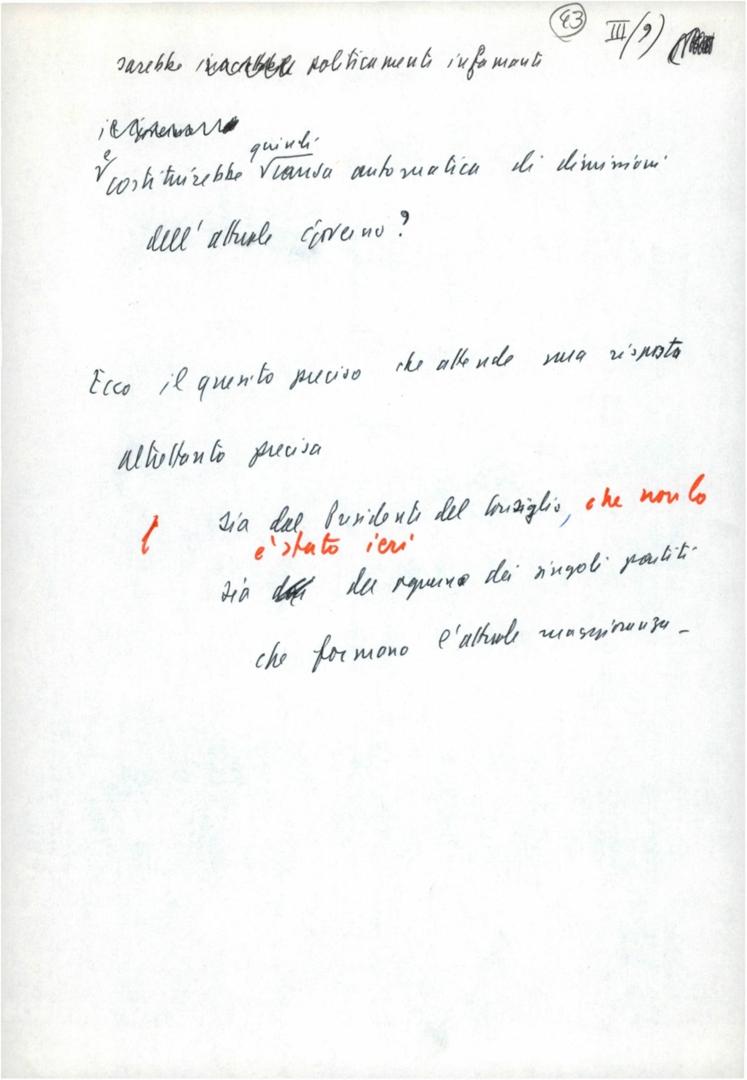 43 III/9)
sarebbe politicamente infamante
e costituirebbe quindi causa automatica di dimissioni
dell'attuale Governo?
Ecco il quesito preciso che attende una risposta
altrettanto precisa
sia dal Presidente del Consiglio, che non lo
è stato ieri
sia dei singoli partiti
che formano l'attuale maggioranza -